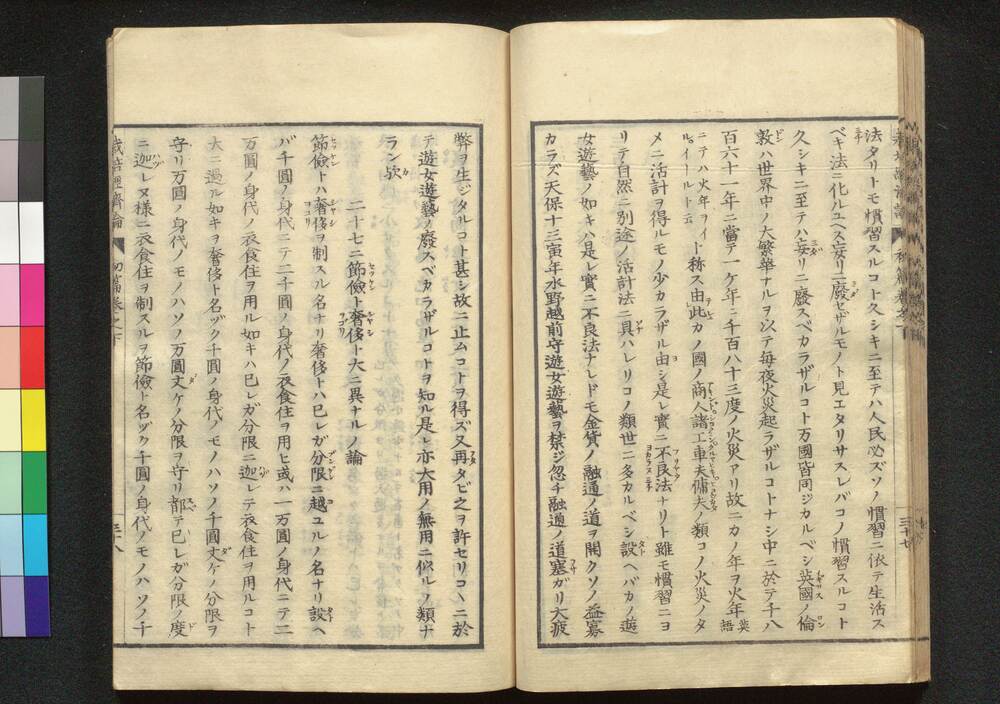 法タリトモ慣習スルコト久シキニ至テハ人民必ズソノ慣習ニ依テ生活ス
ベキ法ニ化ルユヘ妄リニ廢セザルモノト見エタリサスレバコノ慣習スルコト
久シキニ至テハ妄リニ廢スベカラザルコト万國皆同ジカルベシ英國ノ倫
敦ハ世界中ノ大繁華ナルヲ以テ毎夜火災起ラザルコトナシ中ニ於テ千八
百六十一年ニ當テ一ケ年ニ千百八十三度ノ火災アリ故ニカノ年ヲ火年英語
ニテハ火年ヲイートル〻イールト云ト称ス由此カノ國ノ商人諸工車夫傭夫ノ類コノ火災ノタ
メニ活計ヲ得ルモノ少カラザル由シ是レ實ニ不良法ナリト雖モ慣習ニヨ
リテ自然ニ別途ノ活計法ニ具ハレリコノ類世ニ多カルベシ設ヘバカノ遊
女遊藝ノ如キハ是レ實ニ不良法ナレドモ金貨ノ融通ノ道ヲ開クソノ益寡
カラズ天保十三寅年水野越前守遊女遊藝ヲ禁ジ忽チ融通ノ道塞ガリ大疲
弊ヲ生ジタルコト甚シ故ニ止ムコトヲ得ズ又再タビ之ヲ許セリコヽニ於
テ遊女遊藝ノ廢スベカラザルコトヲ知ル是レ亦大用ノ無用ニ似ルノ類ナ
ラン欤
二十七ニ節儉ト奢侈ト大ニ異ナルノ論
節儉トハ奢侈ヲ制スル名ナリ奢侈トハ已レガ分限ニ越ユルノ名ナリ設ヘ
バ千圓ノ身代ニテ二千圓ノ身代ノ衣食住ヲ用ヒ或ハ一万圓ノ身代ニテ二
万圓ノ身代ノ衣食住ヲ用ル如キハ已レガ分限ニ迦レテ衣食住ヲ用ルコト
大ニ過ル如キヲ奢侈ト名ヅク千圓ノ身代ノモノハソノ千圓丈ケノ分限ヲ
守リ万圓ノ身代ノモノハソノ万圓丈ケノ分限ヲ守リ都テ已レガ分限ノ度
ニ迦レヌ様ニ衣食住ヲ制スルヲ節儉ト名ヅク千圓ノ身代ノモノハソノ千
栽培經濟論
初篇卷之下
三十八